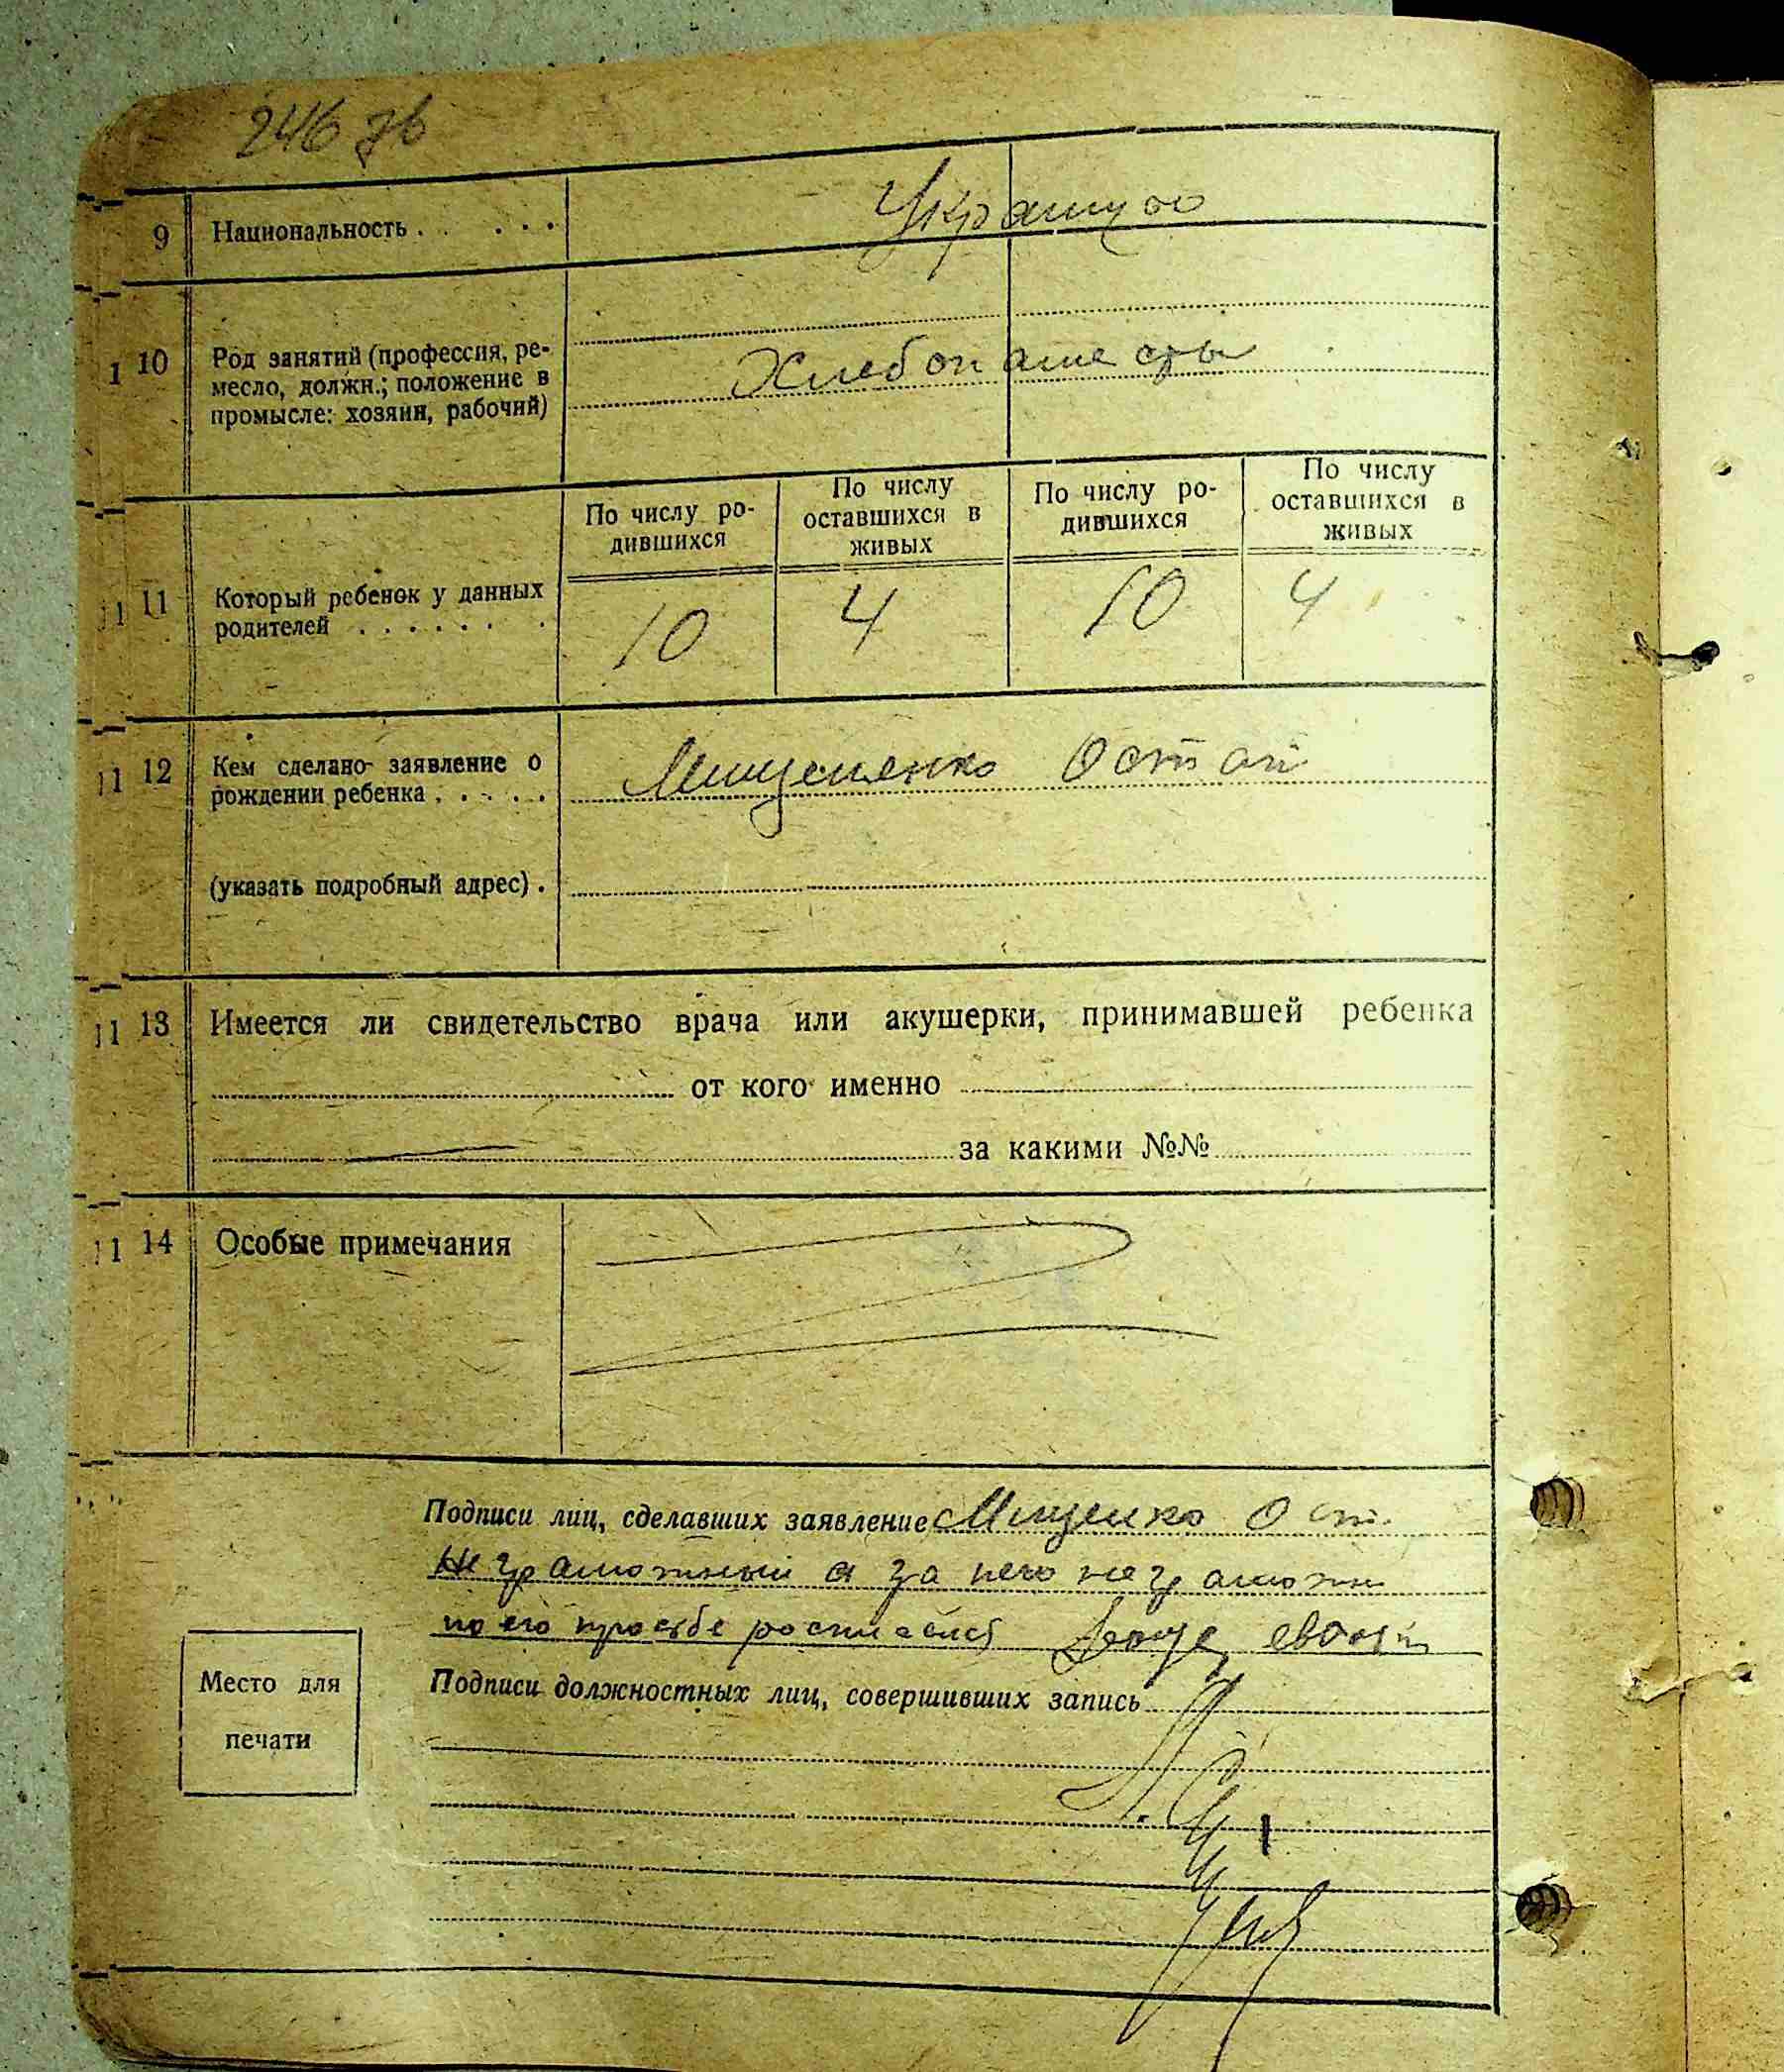 246 зв
9 Национальность . . . . .
1 10 Род занятий (профессия, ре-
месло, должн.; положение в
промысле: хозяин, рабочий)
Хлебопашество
По числу ро-
дившихся
По числу
оставшихся в
живых
По числу ро-
дившихся
По числу
оставшихся в
живых
11 11 Который ребенок у данных
родителей . . . . . . .
10 4 10 4
11 12 Кем сделано заявление о
рождении ребенка . . . . .
Остап
(указать подробный адрес) .
11 13 Имеется ли свидетельство врача или акушерки, принимавшей ребенка
от кого именно
за какими №№
11 14 Особые примечания
Подписи лиц, сделавших заявление Мищенко Ост.
Неграмотный а за него неграмотн
по его просьбе
Место для
печати
Подписи должностных лиц, совершивших запись